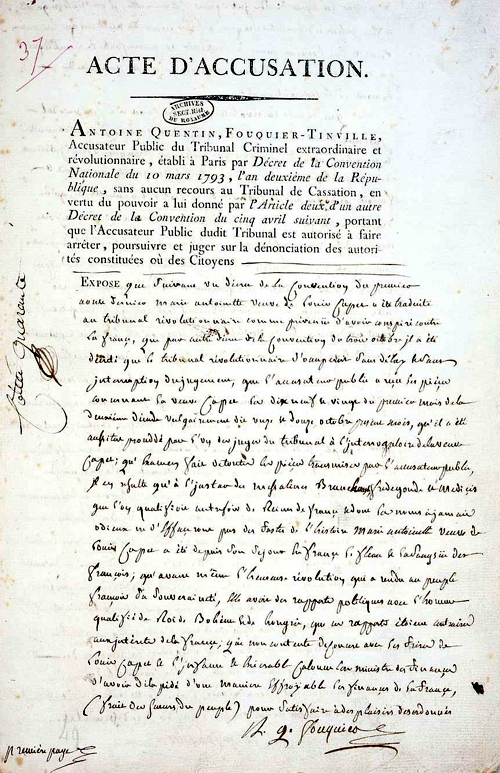 37
ACTE D'ACCUSATION.
ARCHIVES
SECT. HIST
DU ROYAUME
ANTOINE QUENTIN, FOUQUIER-TINVILLE,
Accusateur Public du Tribunal Criminel extraordinaire et
révolutionnaire, établi à Paris par Décret de la Convention
Nationale du 10 mars 1793, l'an deuxième de la Répu-
blique, sans aucun recours au Tribunal de Cassation, en
vertu du pouvoir a lui donné par l'Article deux.e d'un autre
Décret de la Convention du cinq avril suivant, portant
que l'Accusateur Public dudit Tribunal est autorisé à faire
arrêter, poursuivre et juger sur la dénonciation des autori-
tés constituées où des Citoyens
EXPOSE que suivant un décret de la Convention du premier
aoust dernier marie antoinette veuve de Louis Capet a été traduite
au tribunal révolutionnaire comme prévenue d'avoir conspiré contre
la france, que par autre décret de la Convention du trois octobre il a été
décrété que le tribunal révolutionnaire s'occuperoit sans délay et sans
interruption du jugement, que l'accusateur public a reçu les pièces
concernant la veuve Capet les dix neuf et vingt du premier mois de la
deuxième décade vulgairement dits onze et douze octobre présent mois, qu'il a été
aussitôt procédé par l'un des juges du tribunal à l'interrogatoire de la veuve
Capet; qu'examen fait de toutes les pièces transmises par l'accusateur public,
il en résulte qu'à l'instar des messalines Brunehaut, fredegonde et Medicis
que l'on qualifioit autrefois de Reines de france et dont les noms à jamais
odieux ne s'effaceront pas des fastes de l'histoire Marie antoinette veuve de
Louis Capet a été depuis son séjour en france le fléau et la sangsüe des
françois; qu'avant même l'heureuse révolution qui a rendu au peuple
françois sa souveraineté, elle avoit des rapports politiques avec l'homme
qualifié de Roi de Bohême et de hongrie, que ces rapports étoient contraires
aux intérêts de la france, que non contente de concert avec les frères de
Louis Capet et l'infame et exécrable Calonne lors ministre des finances
d'avoir dilapidé d'une manière effroyable les finances de la france,
(fruit des sueurs du peuple) pour satisfaire à des plaisirs désordonnés
A. q. fouquier
première page